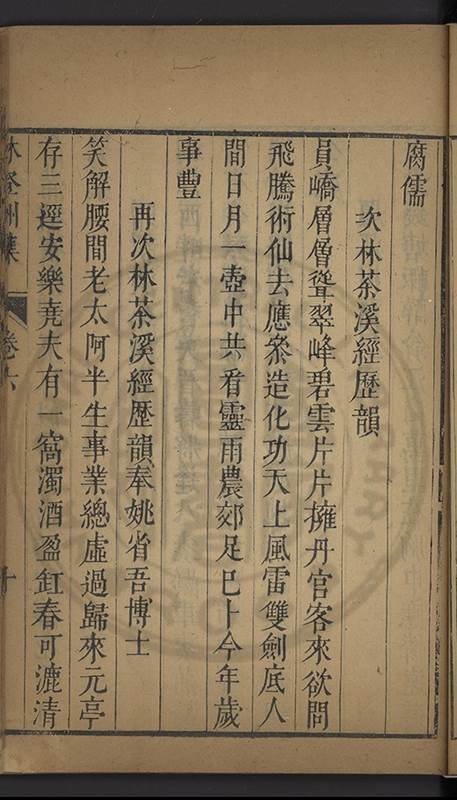 腐儒
次林茶溪經歷韻
員嶠層層聳翠峰碧雲片片擁丹宮客來欲問
飛騰術仙去應叅造化功天上風雷雙劍底人
間日月一壺中共看靈雨農郊足已卜今年歲
事豐
再次林茶溪經歷韻奉姚省吾博士
笑解腰間老太阿半生事業總虛過歸來元亭
存三逕安樂堯夫有一窩濁酒盈缸春可漉清
林登州集
卷六
十